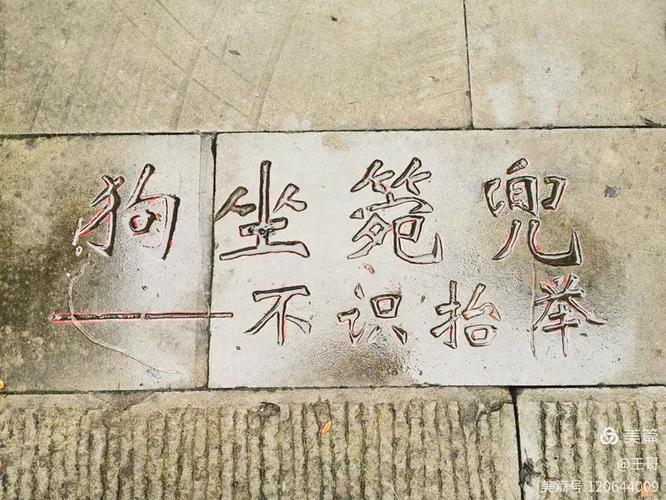 狗坐箢兜
——不识抬举
美篇
@王哥
美篇号:120644009